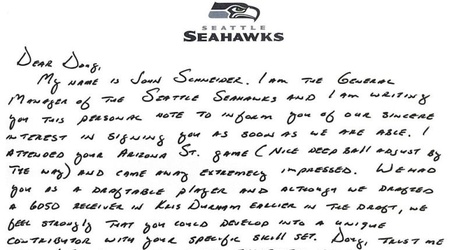 SEATTLE
SEAHAWKS
DEAR DOUG,
MY NAME IS JOHN SCHNEIDER. I AM THE GENERAL
MANAGER OF THE SEATTLE SEAHAWKS AND I AM WRITING
YOU THIS PERSONAL NOTE TO INFORM YOU OF OUR SINCERE
INTEREST IN SIGNING YOU AS SOON AS WE ARE ABLE. I
ATTENDED YOUR ARIZONA ST. GAME (NICE DEEP BALL ADJUST BY
THE WAY) AND CAME AWAY EXTREMELY IMPRESSED. WE HAD
YOU AS A DRAFTABLE PLAYER AND ALTHOUGH WE DRAFTED
A GOOD RECEIVER IN KRIS DURHAM EARLIER IN THE DRAFT, WE
FEEL STRONGLY THAT YOU COULD DEVELOP INTO A UNIQUE
CONTRIBUTOR WITH YOUR SPECIFIC SKILL SET. DOUG, TRUST ME